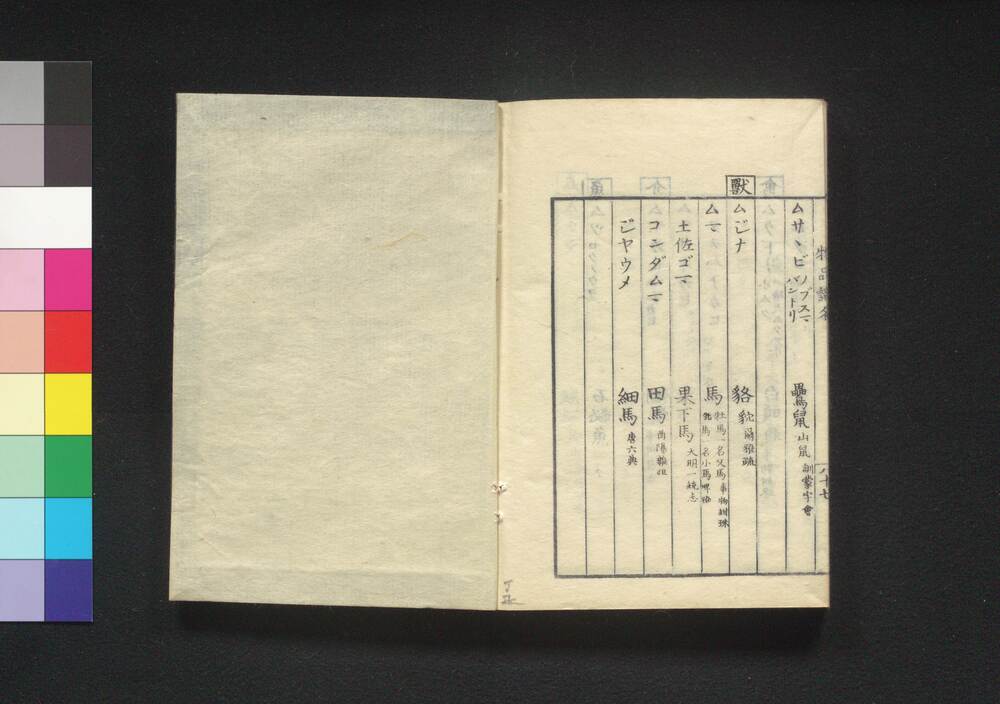 物品識名
八十七
ムサヽビ ノブスマ バントリ 鸓鼠 山鼠 訓蒙字會
獸
ムジナ 貉 貁 爾雅疏
ムマ 馬 牡馬一名父馬事物紺珠 牝馬一名小馬
土佐ゴマ 果下馬 大明一統志
コンダムマ 田馬 酉陽雜俎
ジヤウメ 細馬 唐六典